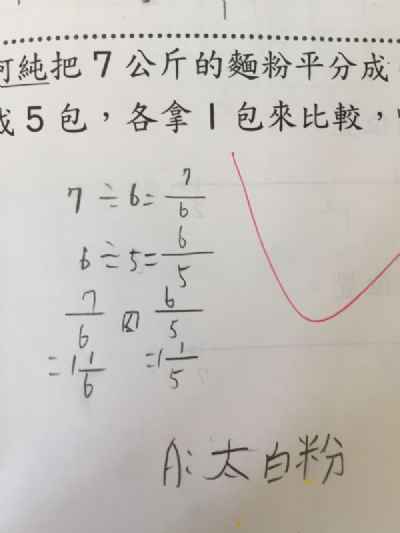 阿純把7公斤的麵粉平分成
成5包，各拿1包來比較，
7÷6=7/6
6÷5=6/5
7/6 < 6/5
=1 1/6 =1 1/5
A:太白粉